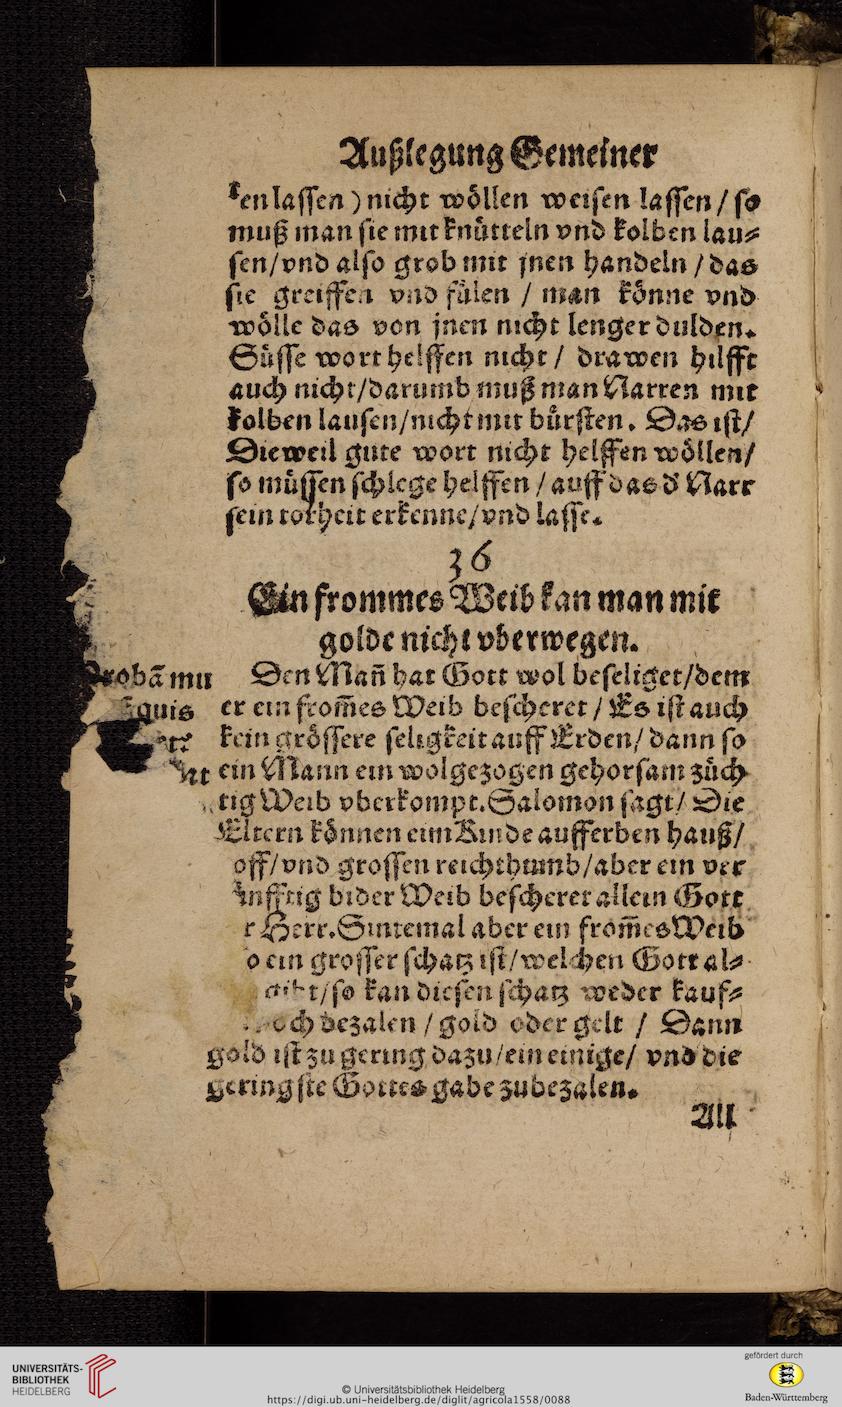 Außlegung Gemeiner
ken lassen) nicht wöllen weisen lassen / so
muß man sie mit knütteln vnd kolben lau⸗
sen/vnd also grob mit jnen handeln / das
sie greiffen vnd fülen / man könne vnd
wölle das von jnen nicht lenger dulden.
Süsse wort helffen nicht / drawen hilfft
auch nicht/darumb muß man Narren mit
kolben lausen/nicht mit bürsten. Das ist/
Dieweil gute wort nicht helffen wöllen/
so müssen schlege helffen / auff das d' Narr
sein torheit erkenne/vnd lasse.
36
Ein frommes Weib kan man mit
golde nicht vberwegen.
Den Mañ hat Gott wol beseliget/dem
er ein from̃es Weib bescheret / Es ist auch
kein grössere seligkeit auff Erden/ dann so
ein Mann ein wolgezogen gehorsam züch
tig Weib vberkompt. Salomon sagt/ Die
Eltern können eim Kinde aufferben hauß/
off/vnd grossen reichthumb/aber ein ver
nfftig bider Weib bescheret allein Gott
r Herr. Sintemal aber ein from̃es Weib
o ein grosser schatz ist/welchen Gott al⸗
gibt/so kan diesen schatz weder kauf⸗
och bezalen / gold oder gelt / Dann
gold ist zu gering dazu/ein einige/ vnd die
geringste Gottes gabe zubezalen.
All
Probã mu
quis
UNIVERSITÄTS-
BIBLIOTHEK
HEIDELBERG
© Universitätsbibliothek Heidelberg
https://digi.ub.uni-heidelberg.de/diglit/agricola1558/0088
gefördert durch
Baden-Württemberg